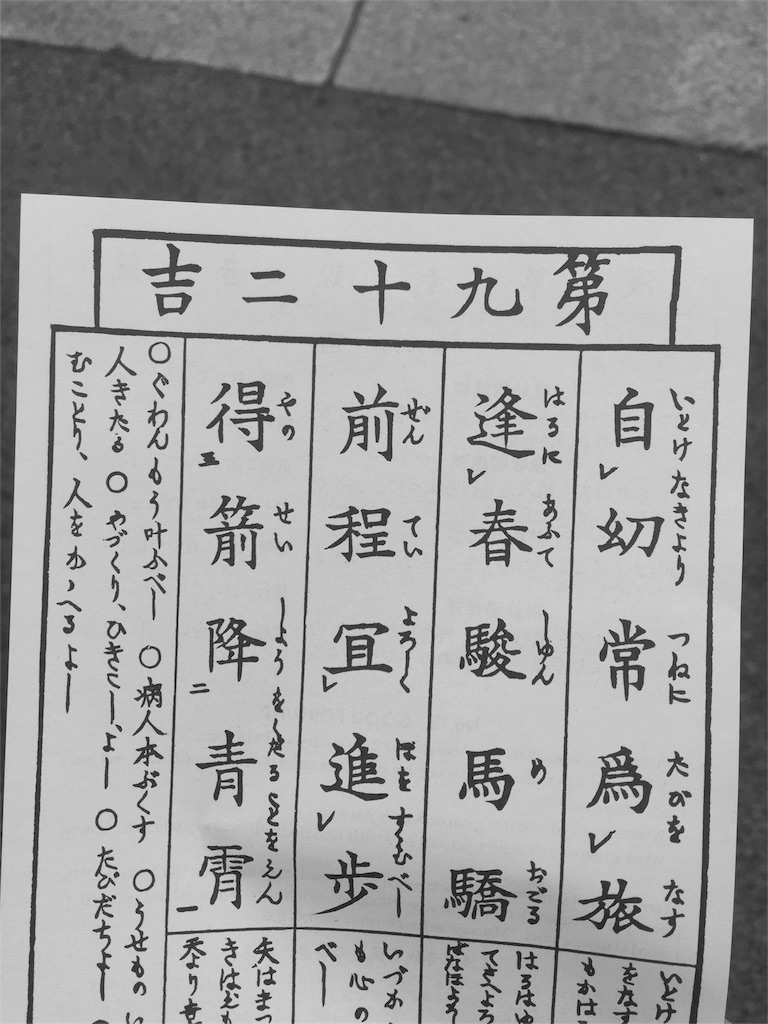 第九十二吉
自幼常爲旅
いとけなきより つねに たびを なす
逢春駿馬驕
はるに あふて しゆん め おごる
前程冝進歩
ぜん てい よろしく ほを すゝむべし
得箭降青霄
やの せい しようをくだることをえん
○ぐわんもう叶ふべし ○病人本ぶくす ○うせもの
人きたる ○やづくり、ひきこし、よし ○たびだちよし
むことり、人をかゝへるよし
いとけ
をなす
もかは
はるはゆ
てきよろ
いづか
も心の
べし
矢はまつ
きはえも
天より